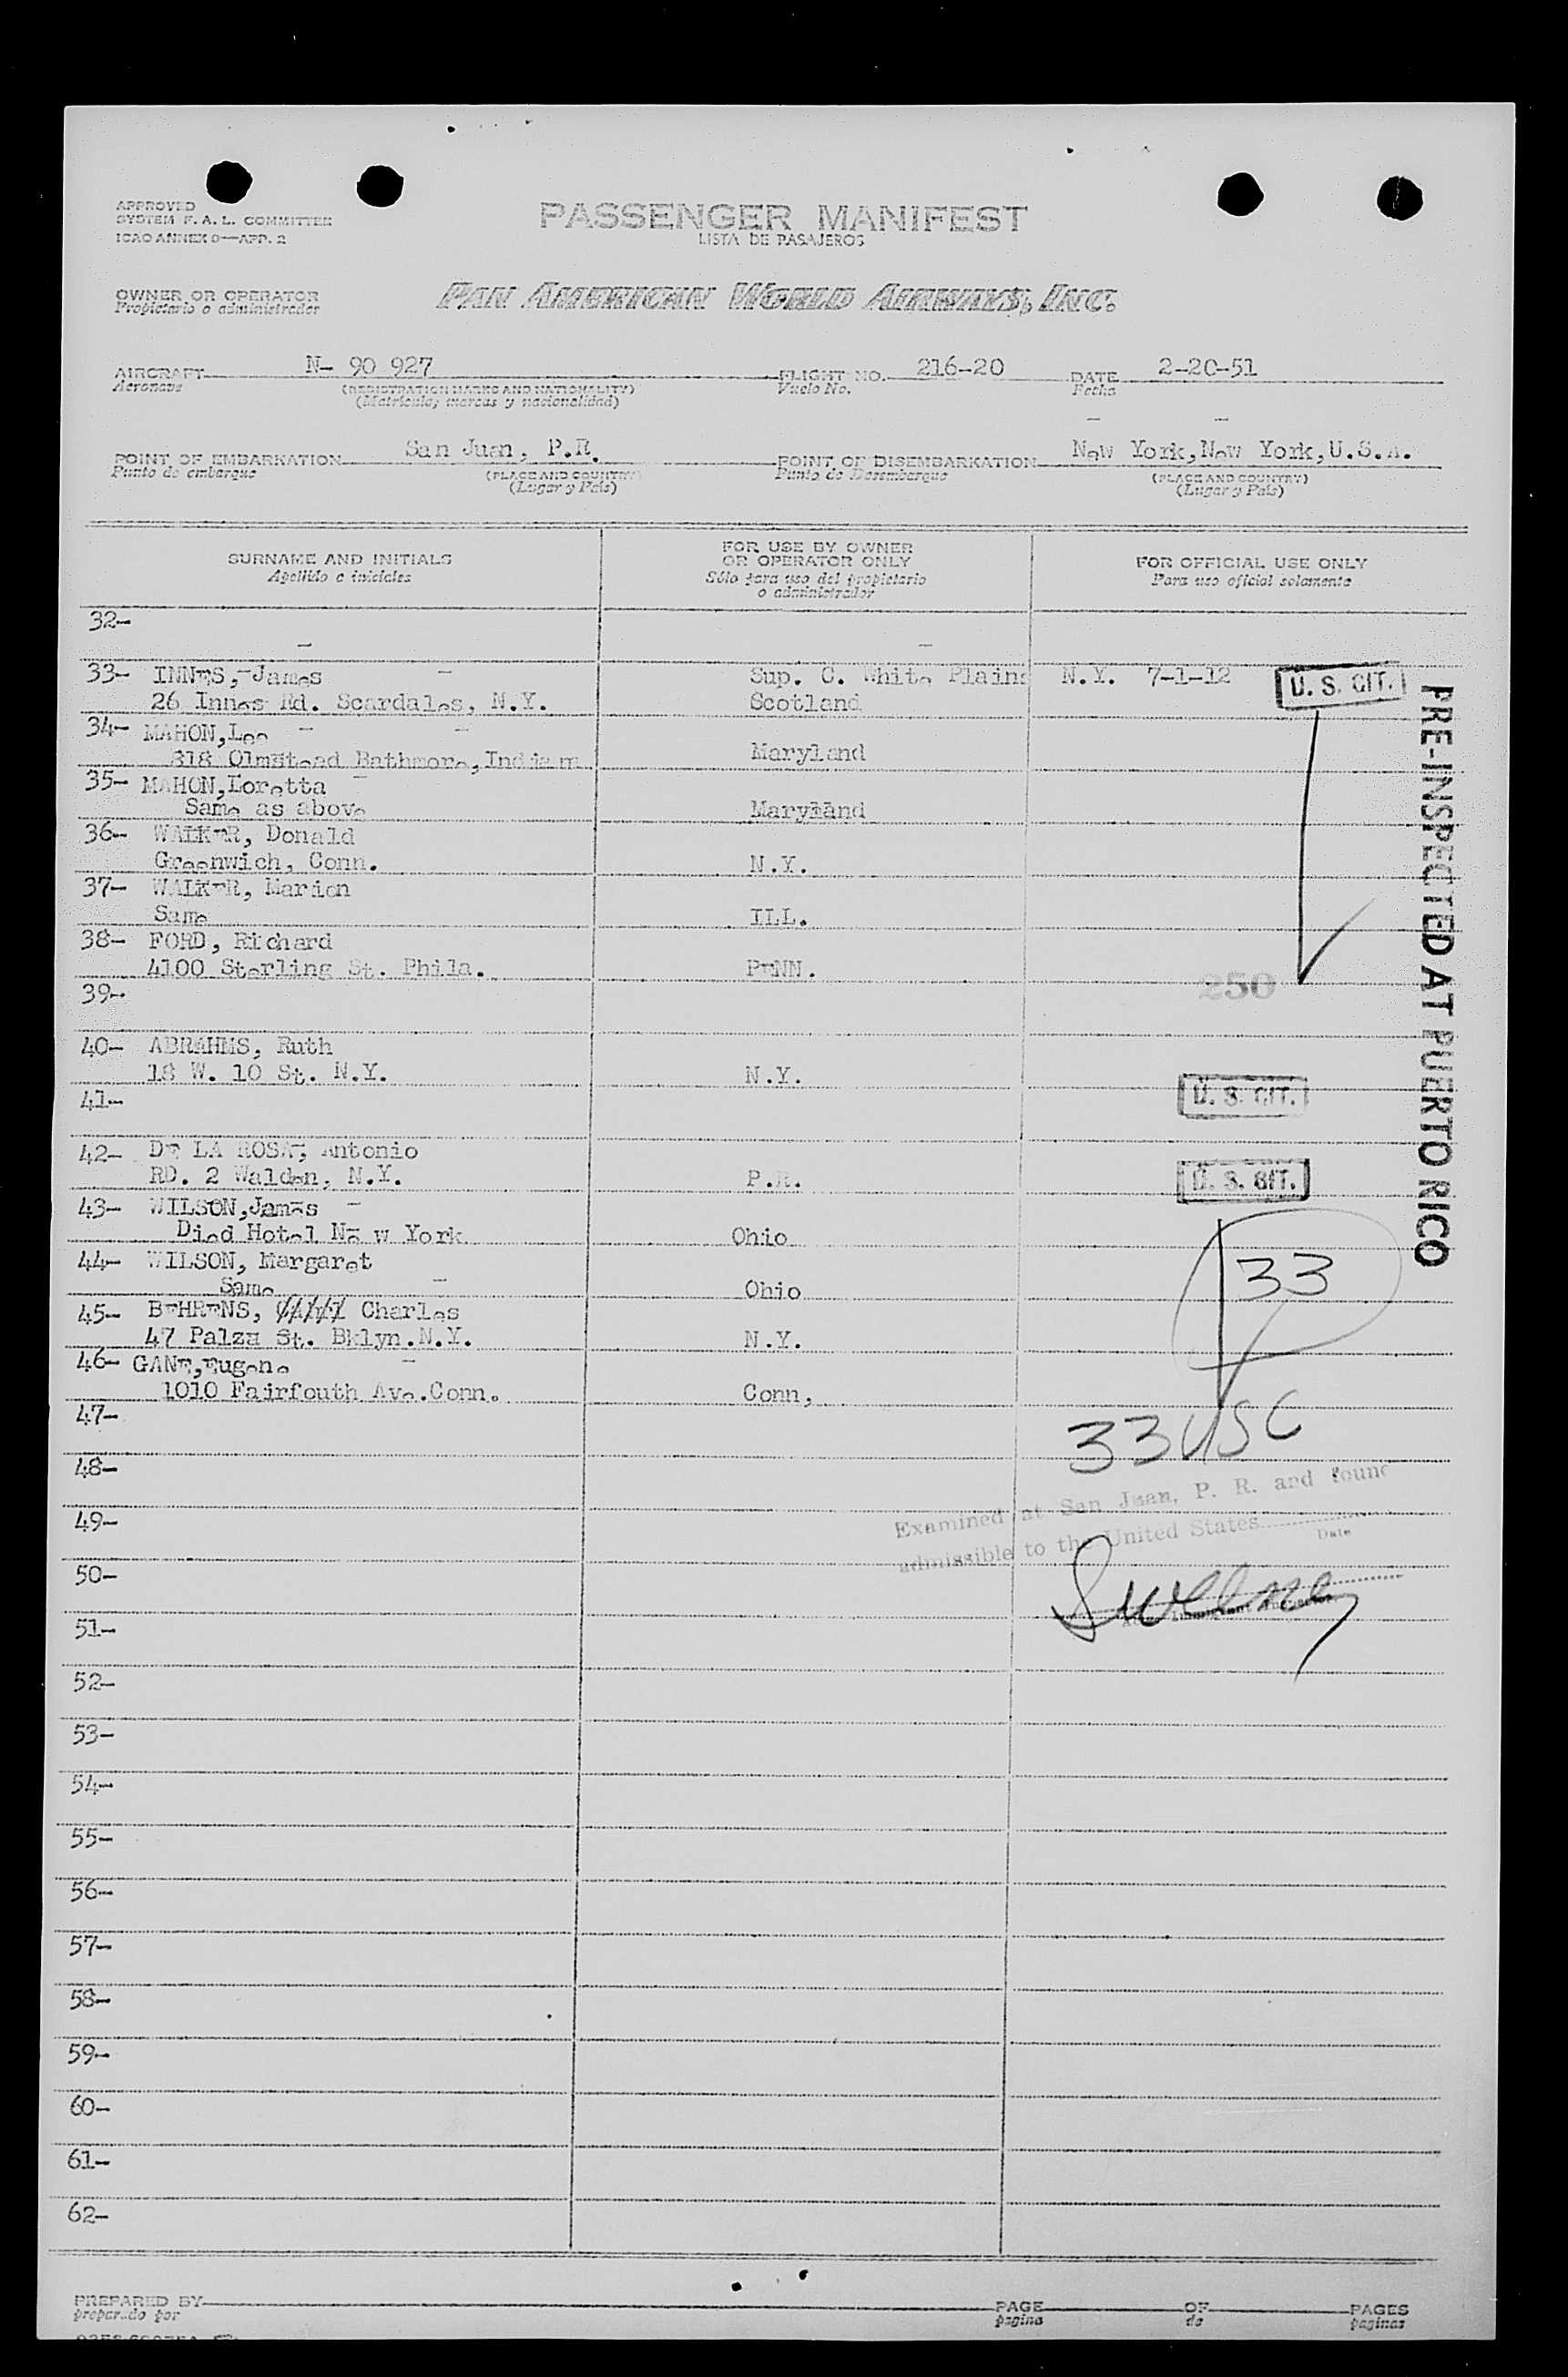 APPROVED
SYSTEM F. A. L. COMMITTEE
ICAO ANNEX 9—APP. 2
PASSENGER MANIFEST
LISTA DE PASAJEROS
OWNER OR OPERATOR
Propietario o administrador
PAN AMERICAN WORLD AIRWAYS, INC.
AIRCRAFT N- 90 927 FLIGHT NO. 216-20 DATE 2-20-51
Aeronave (REGISTRATION MARKS AND NATIONALITY) Vuelo No. Fecha
(Matricula, marcas y nacionalidad)
POINT OF EMBARKATION San Juan, P.R. POINT OF DISEMBARKATION New York, New York, U.S.A.
Punto de embarque (PLACE AND COUNTRY) Punto de Desembarque (PLACE AND COUNTRY)
(Lugar y Pais) (Lugar y Pais)
SURNAME AND INITIALS FOR USE BY OWNER OR OPERATOR ONLY FOR OFFICIAL USE ONLY
Apellido e iniciales Sólo para uso del propietario o administrador Para uso oficial solamente
32-
33- INNES, James Sup. C. White Plains N.Y. 7-1-12 U. S. CIT.
26 Innes Rd. Scardales, N.Y. Scotland
34- MAHON, Lee
818 Olmstead Bathmore, Maryland
35- MAHON, Loretta
Same as above Maryland
36- WALKER, Donald
Greenwich, Conn. N.Y.
37- WALKER, Marion
Same ILL.
38- FORD, Richard
4100 Sterling St. Phila. PENN.
39- 250
40- ABRAHMS, Ruth
18 W. 10 St. N.Y. N.Y.
41- U. S. CIT.
42- DE LA ROSA, Antonio
RD. 2 Walden, N.Y. P.R. U. S. CIT.
43- WILSON, James
Died Hotel New York Ohio
44- WILSON, Margaret 33
Same Ohio
45- BEHRENS, Charles
47 Palza St. Bklyn.N.Y. N.Y.
46- GANE, Eugene
1010 Fairfouth Ave.Conn. Conn,
47- 33 USC
48-
Examined at San Juan, P. R. and found
49-
admissible to the United States
Date
50-
Sweeney
51-
52-
53-
54-
55-
56-
57-
58-
59-
60-
61-
62-
PRE-INSPECTED AT PUERTO RICO
PREPARED BY PAGE OF PAGES
preparado por pagina de paginas